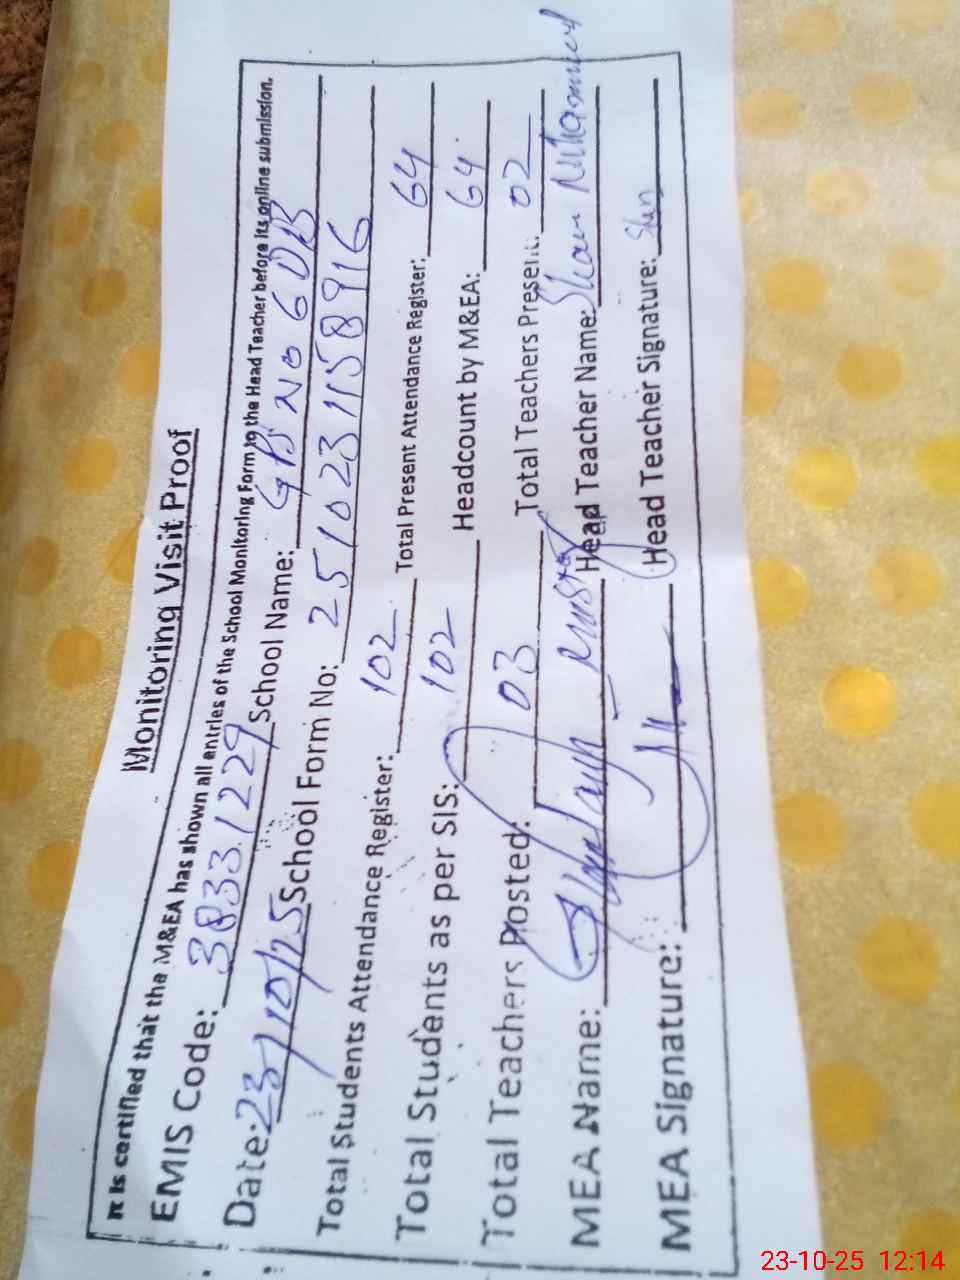 Monitoring Visit Proof
It is certified that the M&EA has shown all entries of the School Monitoring Form to the Head Teacher before its online submission.
EMIS Code: 38331229 School Name: GPS No 6 DB
Date: 23/10/25 School Form No: 2510231158916
Total Students Attendance Register: 102 Total Present Attendance Register: 64
Total Students as per SIS: 102 Headcount by M&EA: 64
Total Teachers Posted: 03 Total Teachers Present: 02
MEA Name: Head Teacher Name: Muhammad
MEA Signature: Head Teacher Signature:
23-10-25 12:14